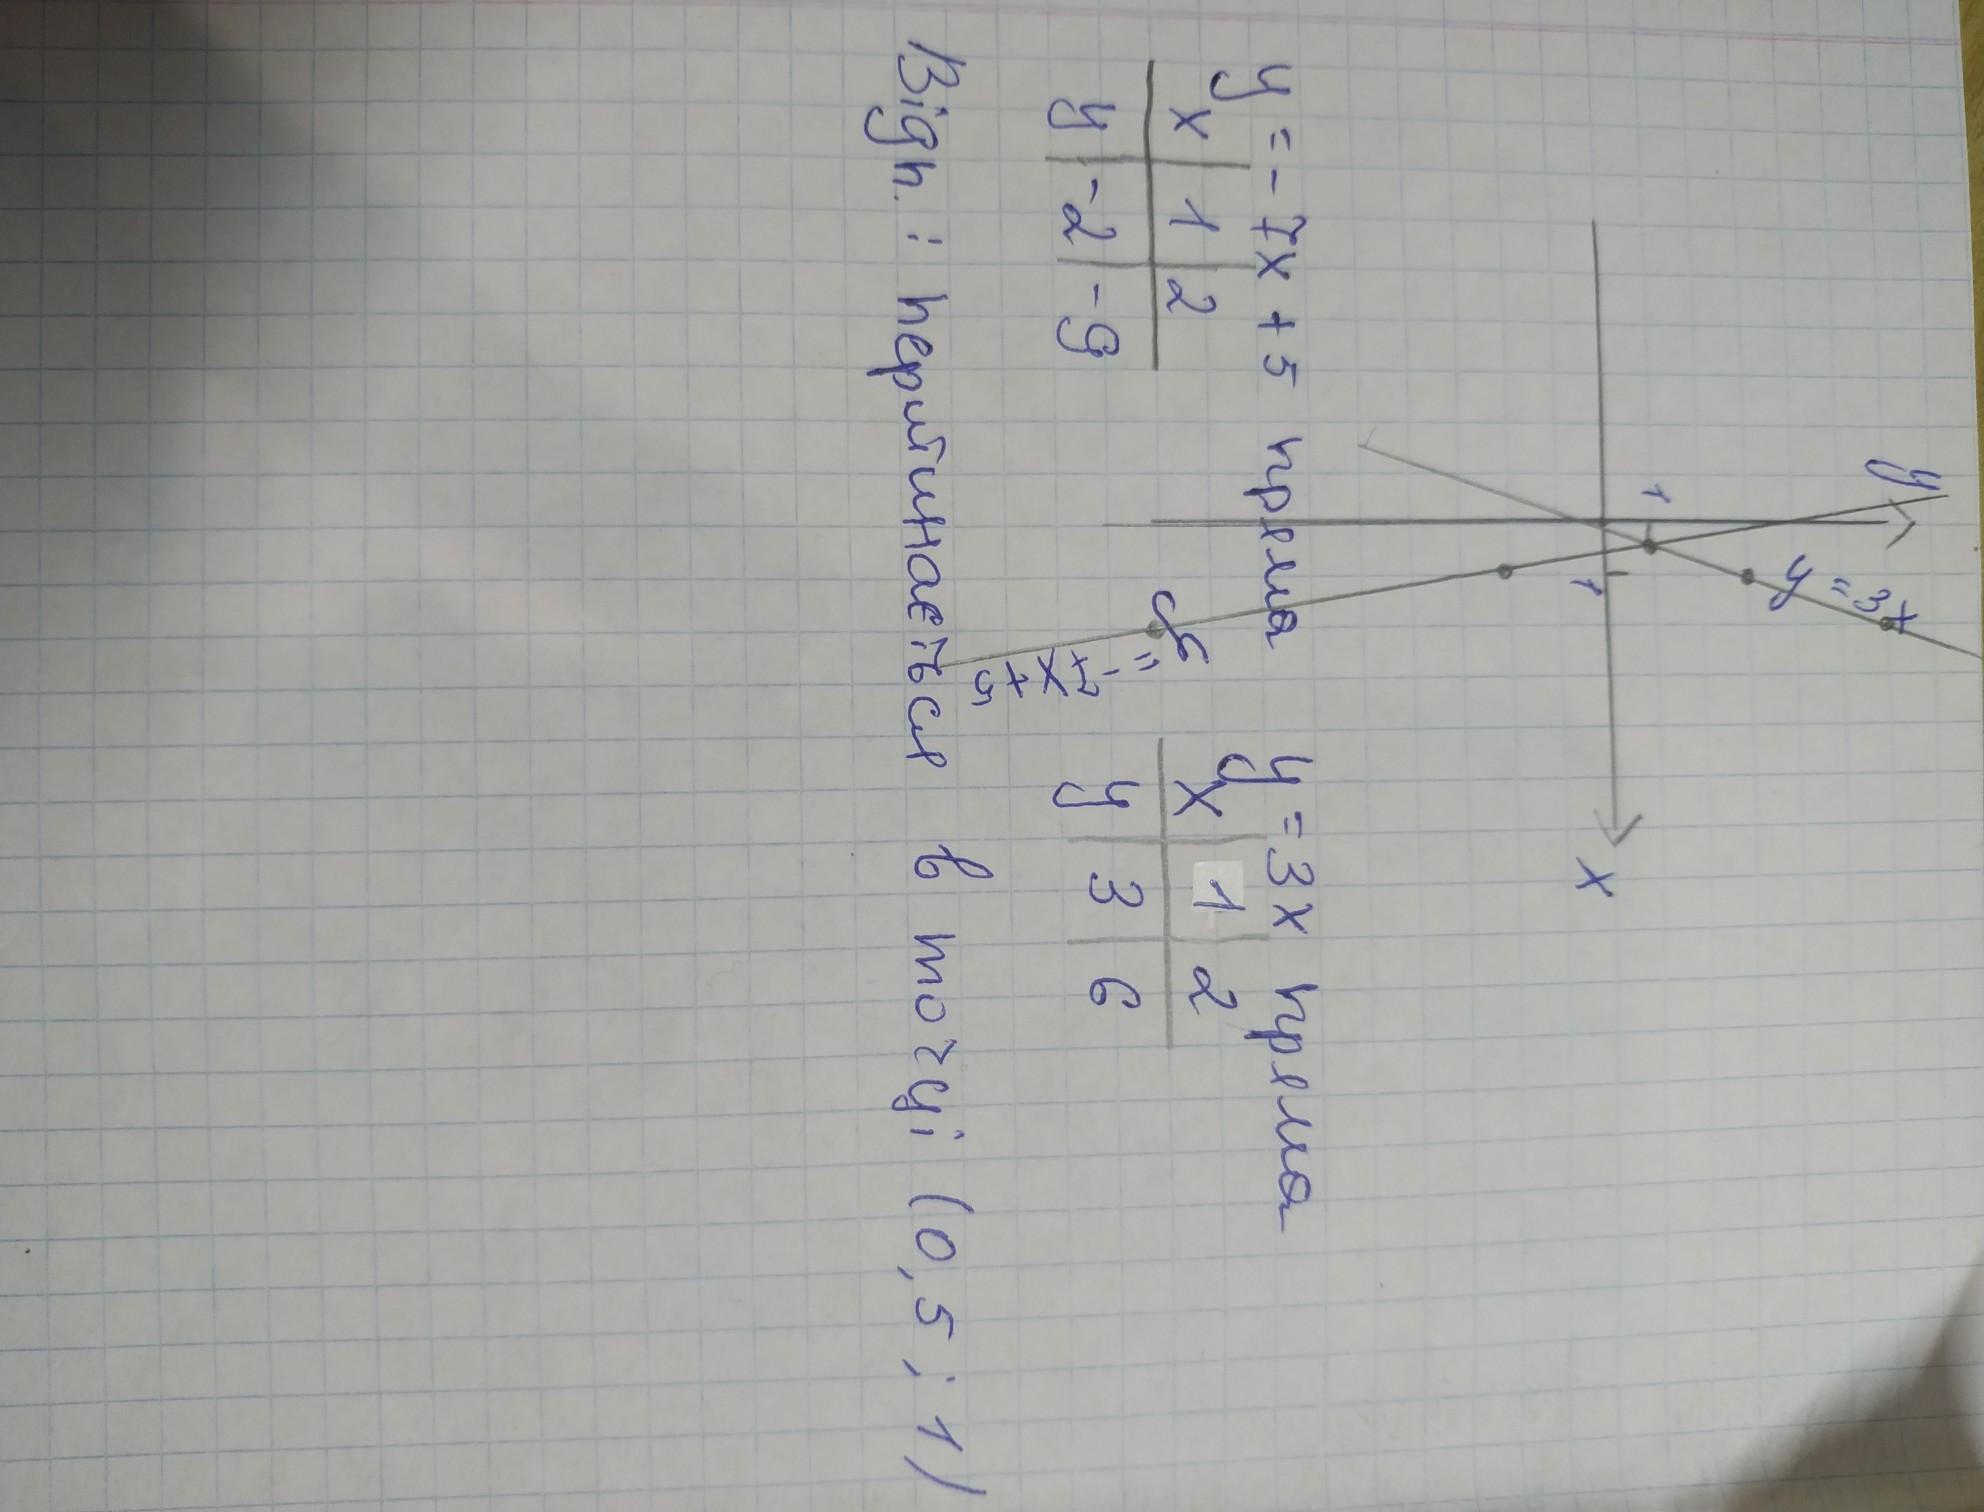 y
1
y = 3x
1
x
y = -7x + 5
y = -7x + 5 пряма
x 1 2
y -2 -9
y = 3x пряма
x 1 2
y 3 6
Відп. : перитинається в точці (0,5 ; 1)